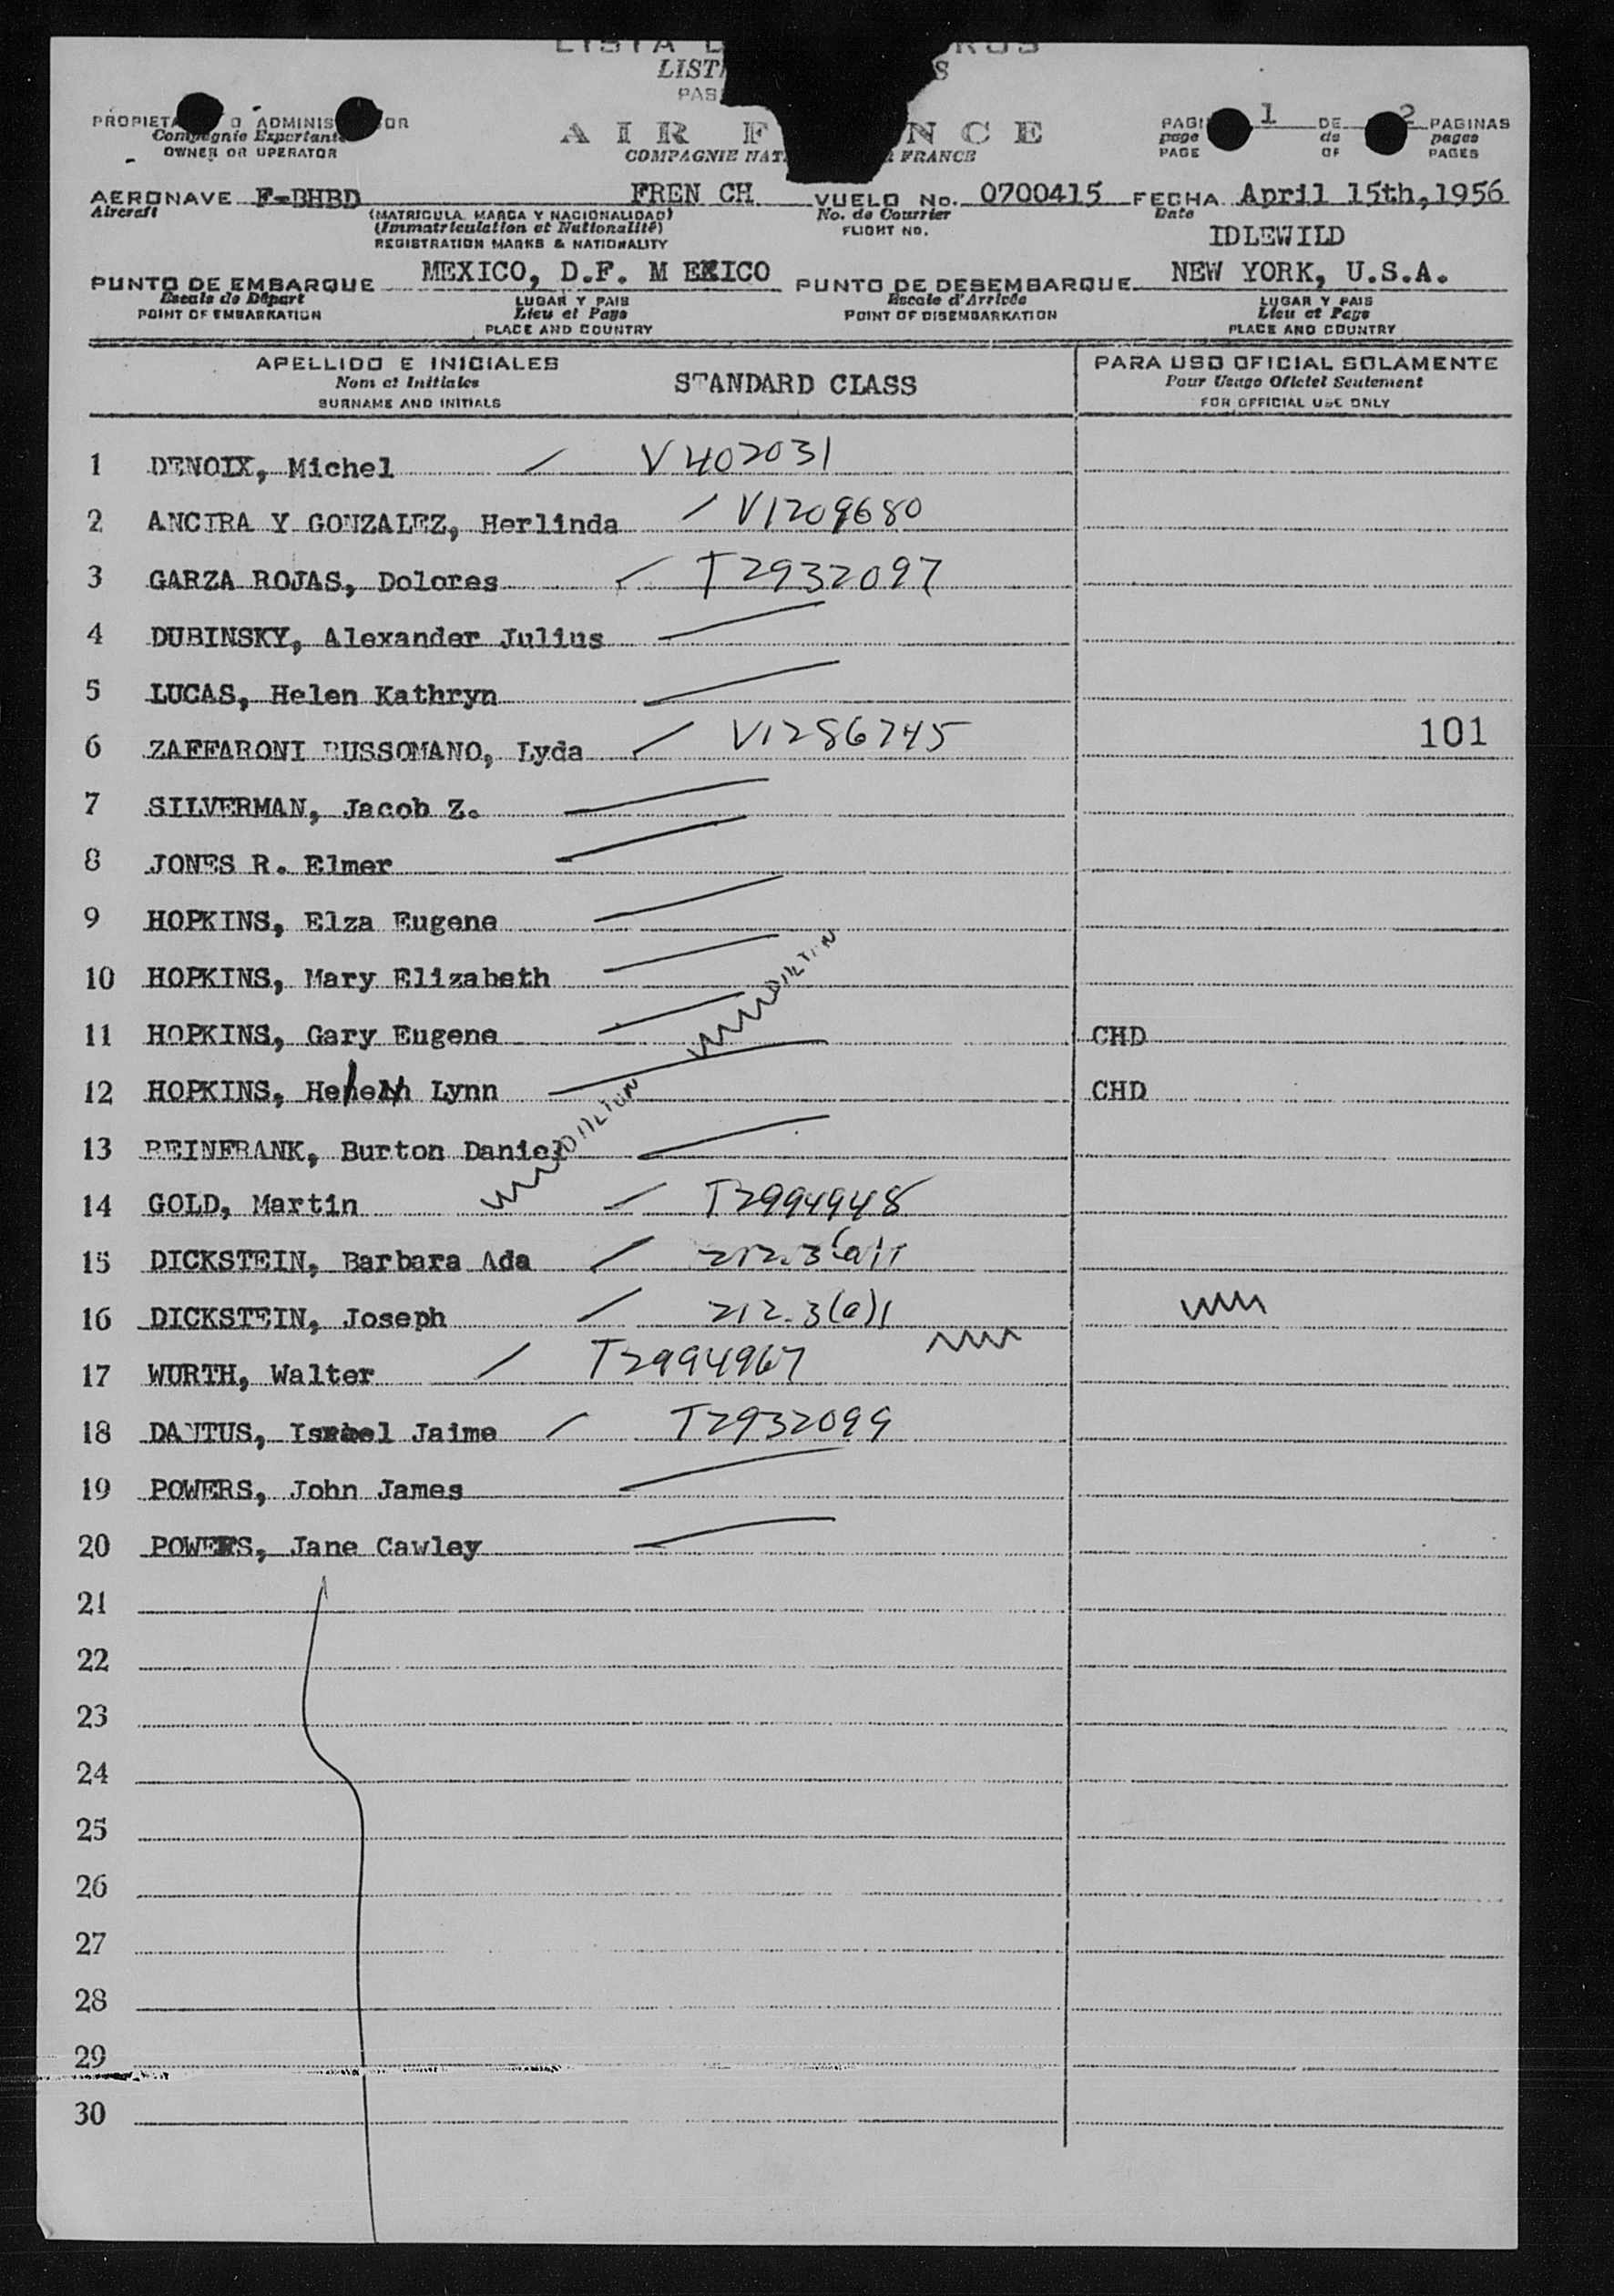 LISTA
LIST
AIR F NCE
COMPAGNIE NAT FRANCE
PROPIETA O ADMINIS OR
Compagnie Exportante
OWNER OR OPERATOR
PAGI 1 DE 2 PAGINAS
page de pages
PAGE OF PAGES
AERONAVE F-BHBD FREN CH VUELO No. 0700415 FECHA April 15th, 1956
Aircraft (MATRICULA MARCA Y NACIONALIDAD) No. de Courrier Date
(Immatriculation et Nationalité) FLIGHT NO.
REGISTRATION MARKS & NATIONALITY IDLEWILD
PUNTO DE EMBARQUE MEXICO, D.F. M EXICO PUNTO DE DESEMBARQUE NEW YORK, U.S.A.
Escale de Départ LUGAR Y PAIS Escale d'Arrivée LUGAR Y PAIS
POINT OF EMBARKATION Lieu et Pays POINT OF DISEMBARKATION Lieu et Pays
PLACE AND COUNTRY PLACE AND COUNTRY
APELLIDO E INICIALES STANDARD CLASS PARA USO OFICIAL SOLAMENTE
Nom et Initiales Pour Usage Officiel Seulement
SURNAME AND INITIALS FOR OFFICIAL USE ONLY
1 DENOIX, Michel V402031
2 ANCIRA Y GONZALEZ, Herlinda V1209680
3 GARZA ROJAS, Dolores T2932097
4 DUBINSKY, Alexander Julius
5 LUCAS, Helen Kathryn
6 ZAFFARONI RUSSOMANO, Lyda V1286745 101
7 SILVERMAN, Jacob Z.
8 JONES R. Elmer
9 HOPKINS, Elza Eugene
10 HOPKINS, Mary Elizabeth
11 HOPKINS, Gary Eugene CHD
12 HOPKINS, Helen Lynn CHD
13 REINFRANK, Burton Daniel
14 GOLD, Martin T2994948
15 DICKSTEIN, Barbara Ada 212.3(a)1
16 DICKSTEIN, Joseph 212.3(a)1
17 WURTH, Walter T2994967
18 DANTUS, Israel Jaime T2932099
19 POWERS, John James
20 POWERS, Jane Cawley
21
22
23
24
25
26
27
28
29
30